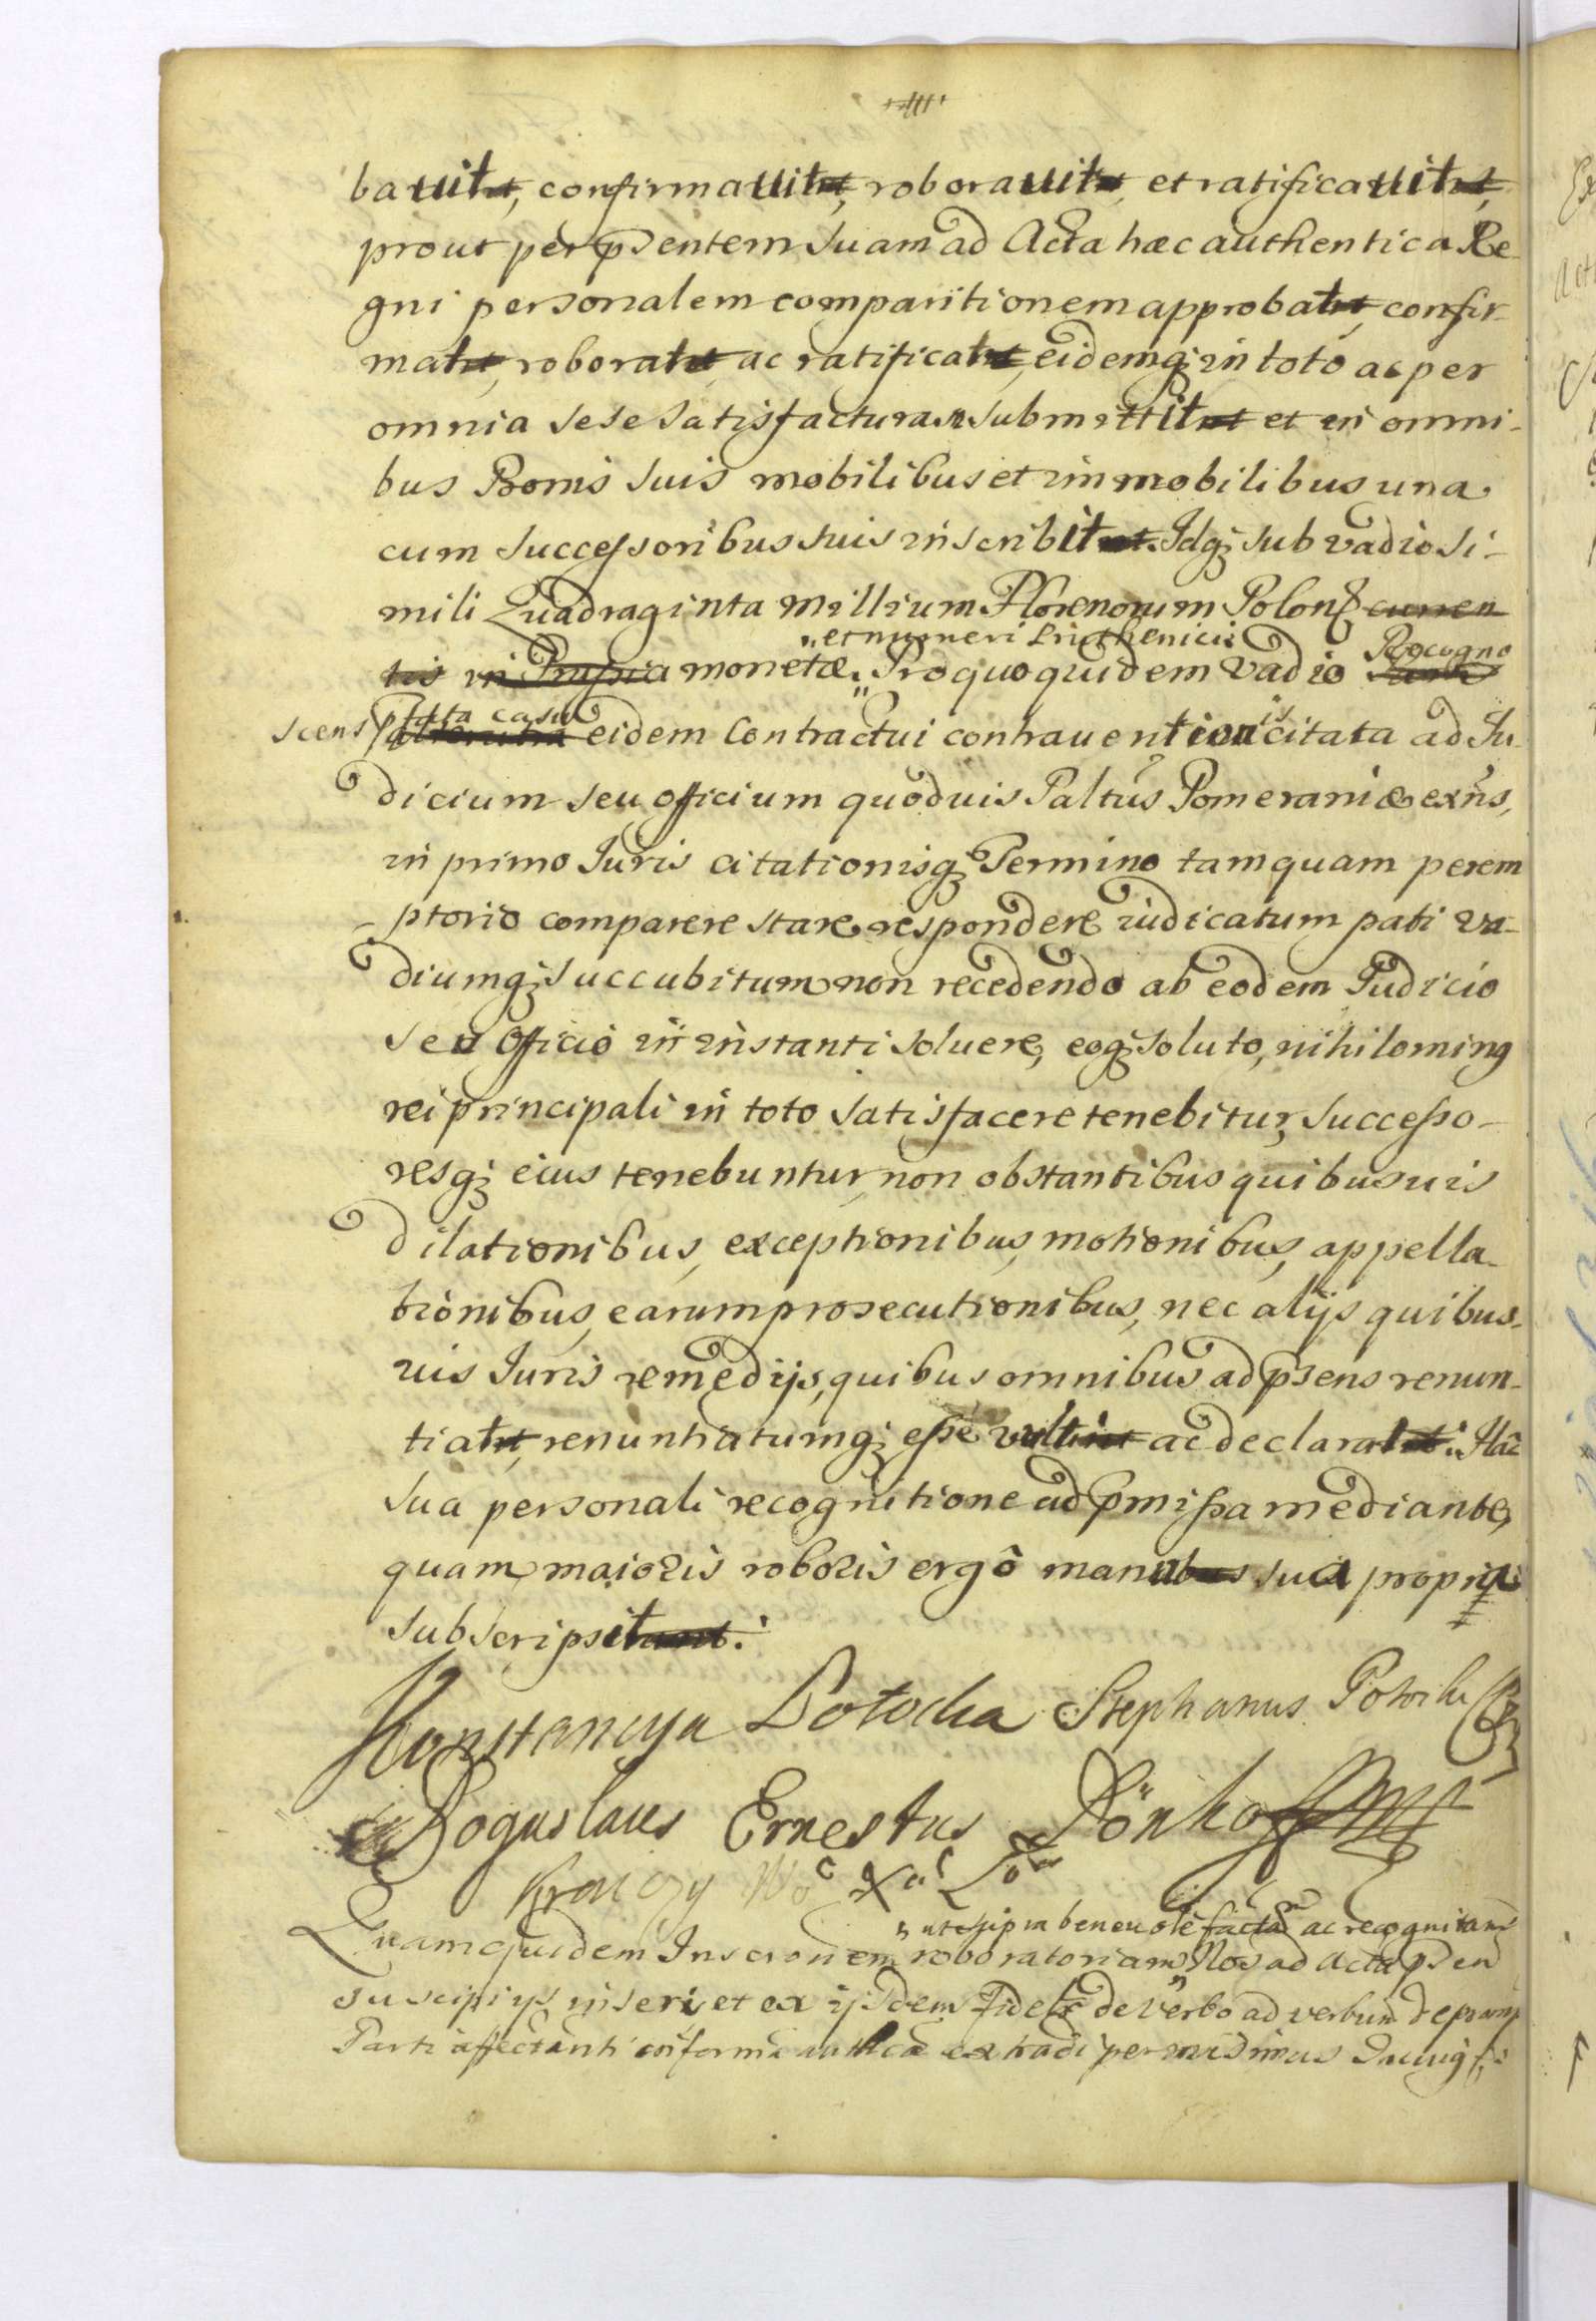 bavit, confirmavit, roboravit, et ratificavit,
prout per p̄sentem suam ad Acta hæc authentica Re-
gni personalem comparitionem approbat, confir-
mat, roborat, ac ratificat, eidemq; in toto ac per
omnia sese satisfacturam submittit et in omni-
bus Bonis suis mobilibus et immobilibus una
cum successoribus suis inscribit. Idq; sub vadio si-
mili Quadraginta millium Florenorum Polon curren
et numeri Pruthenici Recogno
tis in Prussia monetæ. Pro quo quidem vadio
scens casu eidem Contractui contrauentionis citata ad Ju-
dicium seu officium quoduis Paltus Pomeraniæ exñs,
in primo Juris citationisq; Termino tamquam perem
ptorio comparere stare respondere iudicatum pati va-
diumq; succubitum non recedendo ab eodem Judicio
seu Officio in instanti soluere, eoq; soluto, nihilominq
rei principali in toto satisfacere tenebitur, successo-
resq; eius tenebuntur, non obstantibus quibusuis
dilationibus, exceptionibus, motionibus, appella-
tionibus, earum prosecutionibus, nec alijs quibus-
uis Juris remedijs, quibus omnibus ad p̄sens renun-
tiat, renuntiatumq; esse vult ac declarat. Hac
sua personali recognitione ad p̄missa mediante,
quam maioris roboris ergô manu sua propria
subscripsit.
Konstancya Potocka Stephanus Potocki
Boguslaus Ernestus Dönhoff
beneuole facta ac recognitam
Quamquidem roboratoriam Nos ad Acta p̄sen
suscipi ijs inseri, et ex ijsdem de verbo ad verbum depromp
Parti affectanti in forma extradi permisimus